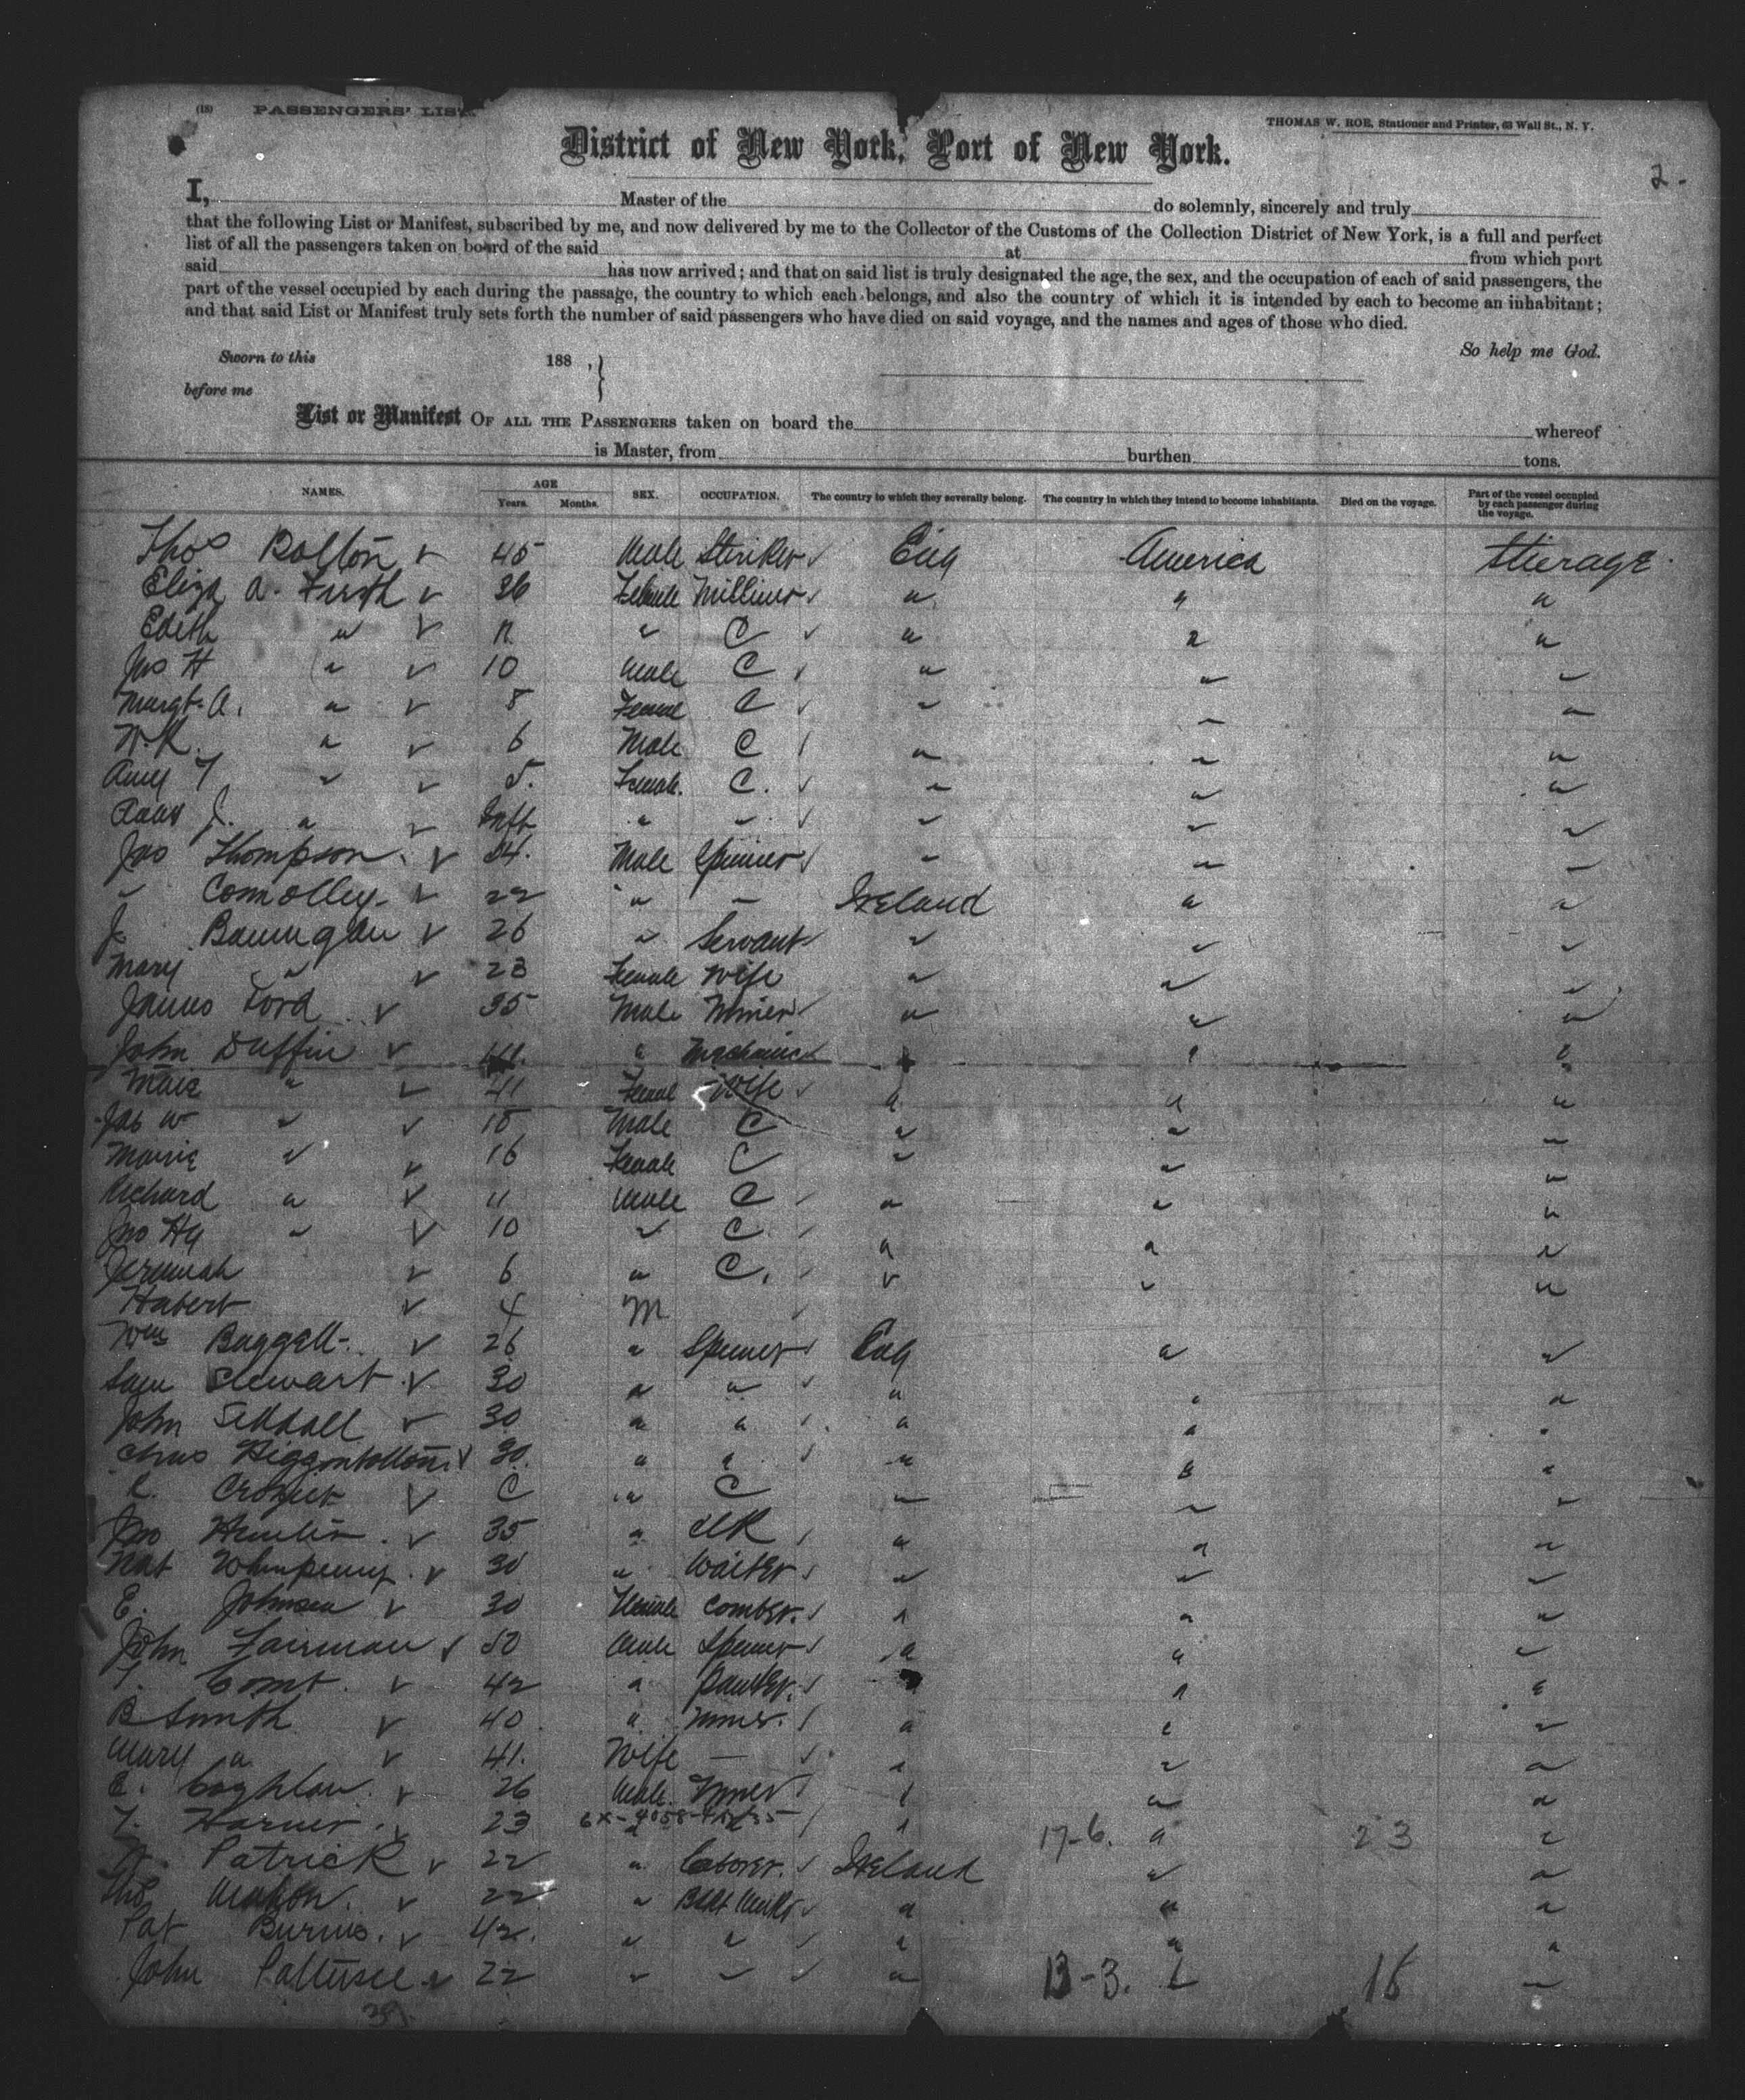 (18) PASSENGERS' LIST.
THOMAS W. ROE, Stationer and Printer, 63 Wall St., N. Y.
District of New York, Port of New York.
2.
I, Master of the do solemnly, sincerely and truly
that the following List or Manifest, subscribed by me, and now delivered by me to the Collector of the Customs of the Collection District of New York, is a full and perfect
list of all the passengers taken on board of the said at from which port
said has now arrived; and that on said list is truly designated the age, the sex, and the occupation of each of said passengers, the
part of the vessel occupied by each during the passage, the country to which each belongs, and also the country of which it is intended by each to become an inhabitant;
and that said List or Manifest truly sets forth the number of said passengers who have died on said voyage, and the names and ages of those who died.
Sworn to this 188 , } So help me God.
before me
List or Manifest OF ALL THE PASSENGERS taken on board the whereof
is Master, from burthen tons.
NAMES. AGE Years. Months. SEX. OCCUPATION. The country to which they severally belong. The country in which they intend to become inhabitants. Died on the voyage. Part of the vessel occupied by each passenger during the voyage.
Thos Bolton 45 Male Striker Eng America Steerage
Eliza A. Firth 36 Female Milliner " " "
Edith " " C " " "
Jos H " 10 Male C " " "
Margt. A. " 8 Female C " " "
W.R. " 6 Male C " " "
Amy " 5. Female. C. " " "
J. " Inft " " " " "
Jno Thompson. Male Spinner " " "
" Connolley 22 " " Ireland " "
J. 26 " Servant " " "
Mary " 23 Female Wife " " "
James Ford 35 Male Miner " " "
John Duffin 41. " Mechanic " " "
" 41 Female Wife " " "
Jas W " Male C " " "
" 16 Female C " " "
Richard " 11 Male C " " "
Jno Hy " 10 " C " " "
Jeremiah 6 " C. " " "
Hubert 4 M
Wm Baggall 26 " Spinner Eng " "
Sam Stewart 30 " " " " "
John Siddall 30 " " " " "
Higginbottom 30. " " " " "
C " C " " "
Jno 35 " Clk " " "
Nat Whimpenny 30 " Waiter " " "
E. Johnson 30 Female Comber. " " "
John Fairman 50 Male Spinner " " "
42 " " " "
B Smith 40 " Miner. " " "
Mary " 41. Wife — " " "
E. Coghlan. 26 Male " " "
T. 23 " 17-6. " 23 "
Patrick 22 " Laborer. Ireland " "
22 " " " "
Pat Burns. 42. " " " " "
John 22 " " " 13-3. " 16 "
39